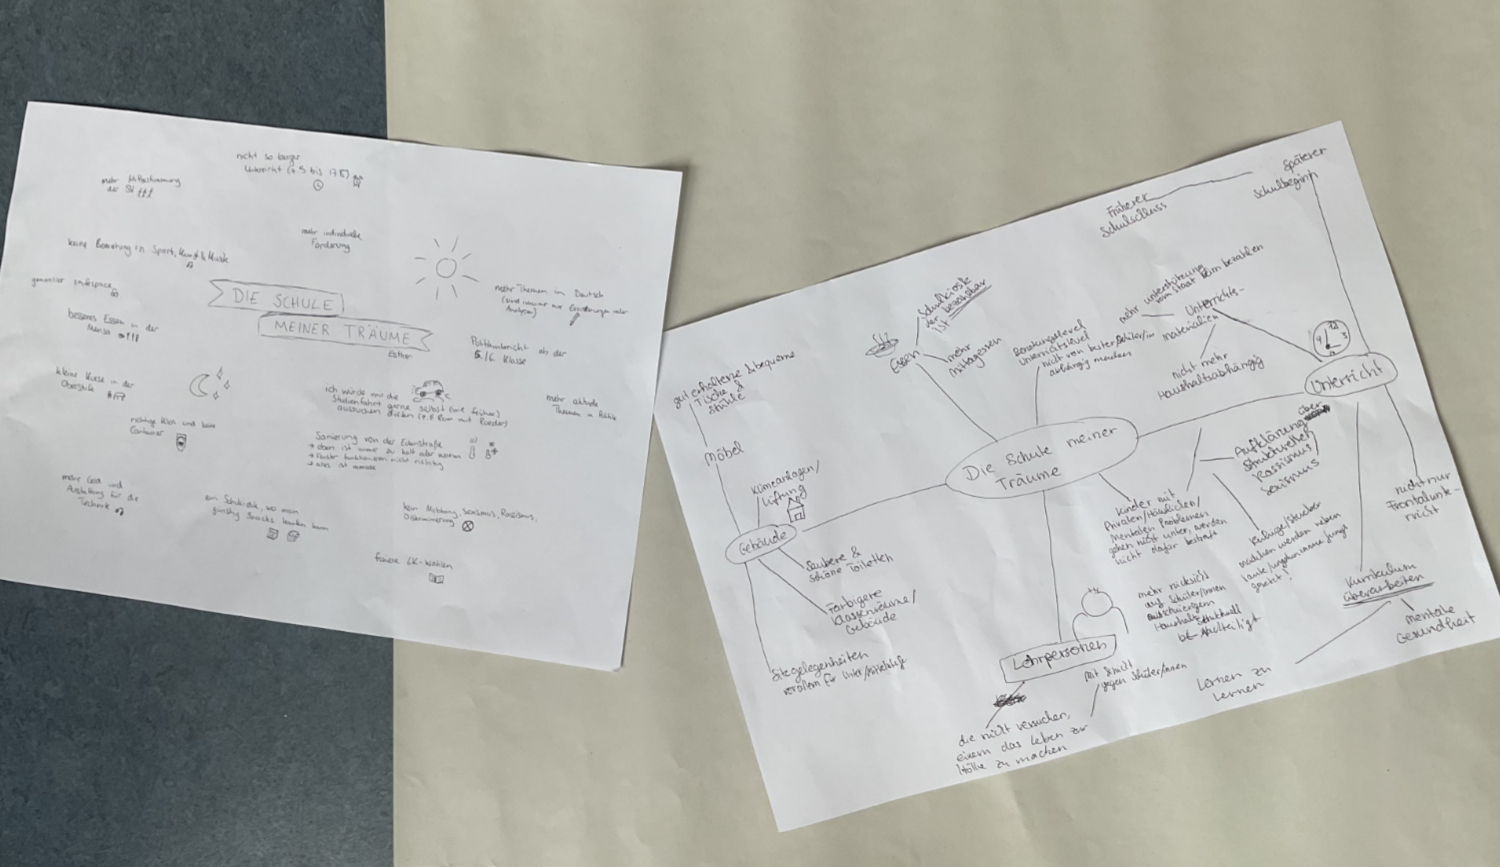 nicht so langer
Unterricht (7.5 bis 17.5)
mehr Mitbestimmung
der
mehr individuelle
Förderung
keine Bewertung in Sport, Kunst & Musik
DIE SCHULE
MEINER TRÄUME
Esther
mehr Themen im Deutsch
(sind immer nur Erörterungen oder
Analysen)
besseres Essen in der
Mensa
Politikunterricht ab der
5./6. Klasse
kleine Kurse in der
Oberstufe
ich würde mir die
Studienfahrt gerne selbst (wie früher)
aussuchen dürfen
mehr aktuelle
Themen in Politik
richtige Klos und keine
Container
Sanierung von der Edenstraße
→ dann ist immer zu kalt oder warm
→ Fenster funktionieren nicht richtig
→ alles ist
mehr Geld und
Ausstattung für die
Technik
ein Schulkiosk, wo man
günstig Snacks kaufen kann
kein Mobbing, Sexismus, Rassismus,
Diskriminierung
LK-Wahlen
Späterer
Schulbeginn
Früherer
Schulschluss
Schulkiosk
der bezahlbar
ist
Essen
mehr
Mittagessen
Beratungslevel
Unterrichtslevel
nicht von
abhängig machen
mehr unterstützung
vom Staat beim bezahlen
Unterrichts-
materialien
nicht mehr
Haushaltsabhängig
12
3
Unterricht
gut erhaltene & bequeme
Tische &
Stühle
Möbel
Klimeanlagen/
Lüftung
Die Schule meiner
Träume
Gebäude
Saubere &
schöne Toiletten
Farbigere
Klassenräume/
Gebäude
Sitzgelegenheiten
vorallem für Unter/Mittelstufe
Kinder mit
Privaten/Häuslichen/
Mentalen Problemen
gehen nicht unter, werden
nicht dafür bestraft
Aufklärung über
strukturellen
Rassismus/
Sexismus
Ruhige/Streber
mädchen werden neben
laute/ungehorsame Jungs
gesetzt!
nicht nur
Frontalunte-
rricht
mehr rücksicht
auf Schüler/innen
aus schwierigem
Haushalt/strukturell
benachteiligt
Kurrikulum
überarbeiten
mentale
Gesundheit
Lernen zu
Lernen
Lehrpersonen
mit
gegen Schüler/innen
die nicht versuchen,
einem das Leben zur
Hölle zu machen